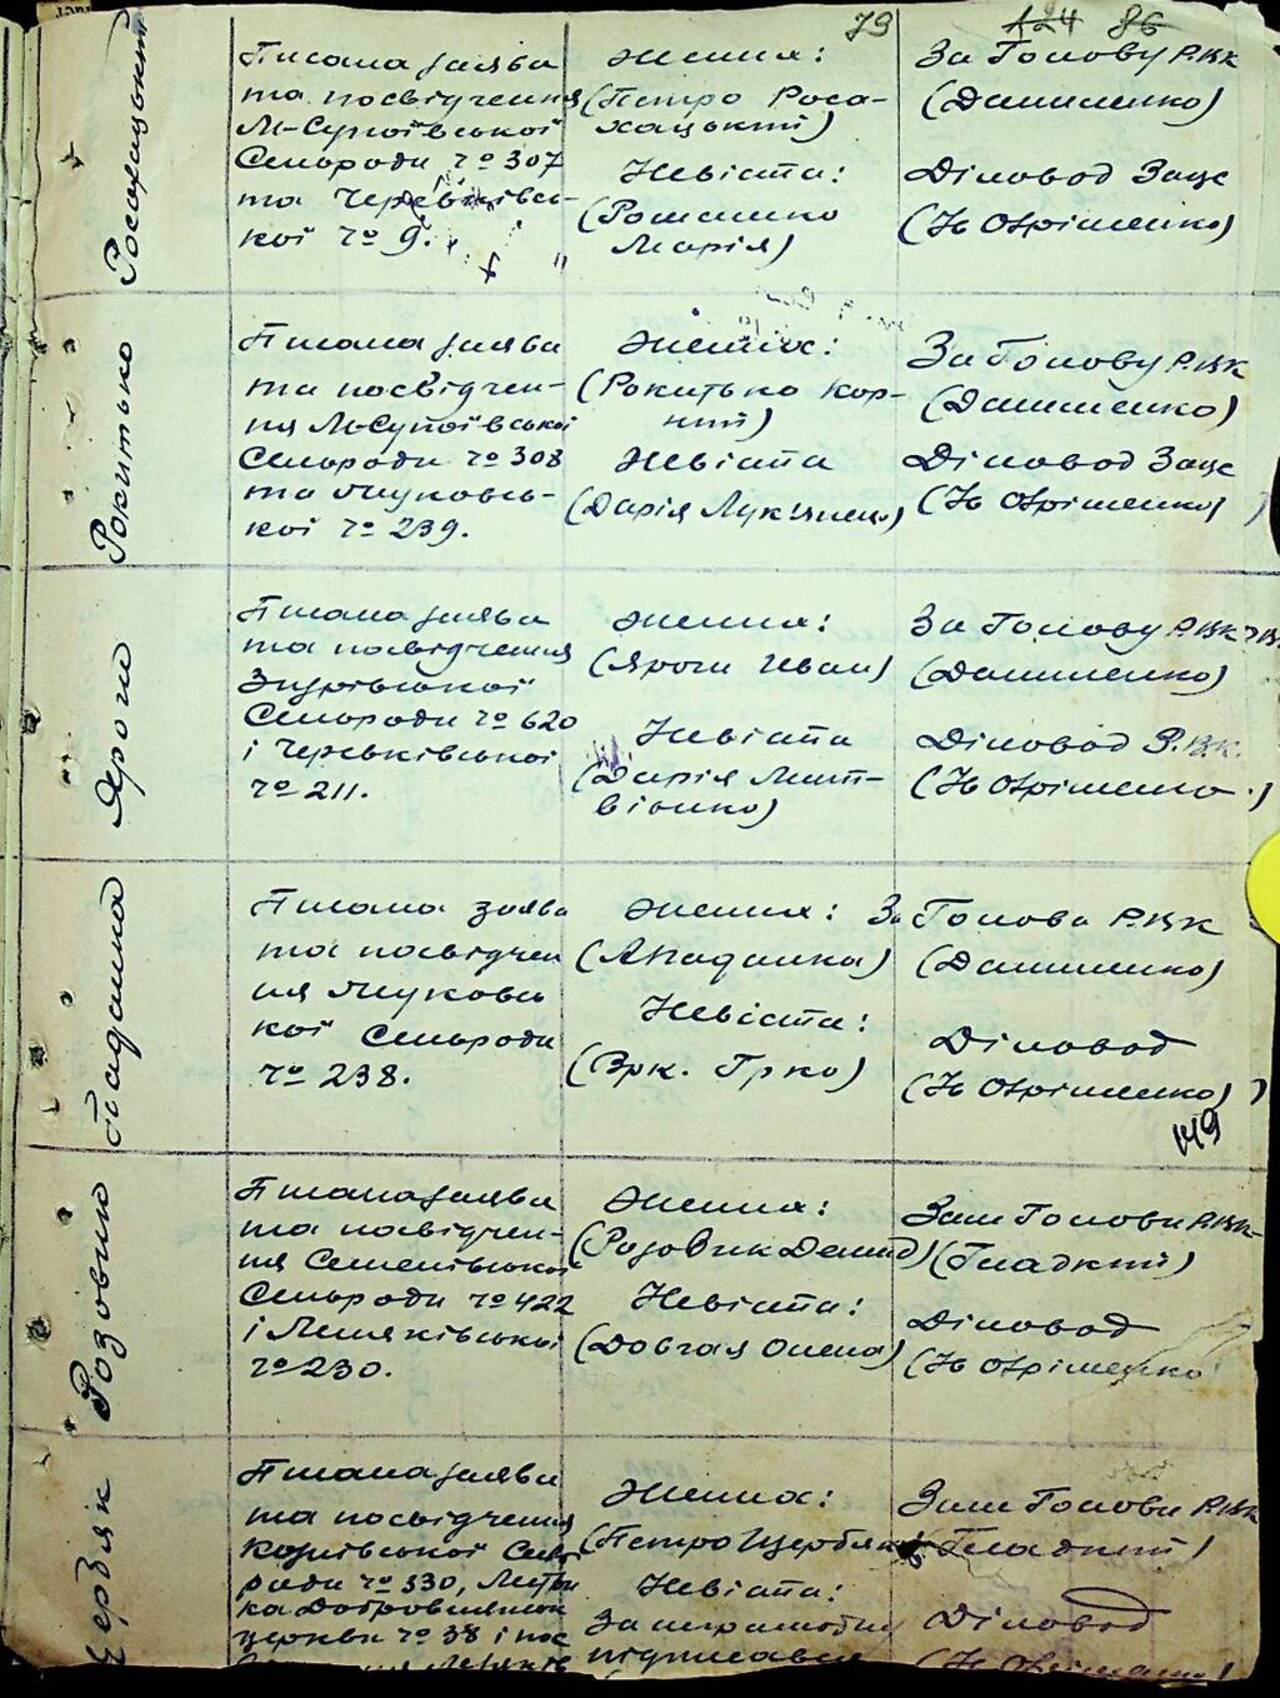 79
124 86
Росохацький
Писана заява
та посвідчення
М-Супоївської
Сельради № 307
та Черевківсь-
кої № 9.
Жених:
(Петро Роса-
хацький)
Невіста:
(Романко
Марія)
За Голову РВК
(Даниленко)
Діловод Загс
(Охріменко)
Рокитько
Писана заява
та посвідчен-
ня М-Супоївської
Сельради № 308
та Луковсь-
кої № 239.
Жених:
(Рокитько Кор-
ній)
Невіста
(Дарія Лук'янець)
За Голову РВК
(Даниленко)
Діловод Загс
(Охріменко)
Ярош
Писана заява
та посвідчення
Згурівської
Сельради № 620
і Черевківської
№ 211.
Жених:
(Ярош Иван)
Невіста
(Дарія Лит-
віонко)
За Голову РВК
(Даниленко)
Діловод Р.В.К.
(Охріменко.)
Гладанка
Писана заява
та посвідчен
ня Луковсь
кої Сельради
№ 238.
Жених:
Невіста:
За Голова РВК
(Даниленко)
Діловод
(Охріменко)
149
Розовик
Писана заява
та посвідчен-
ня Семенівської
Сельради № 422
і Лемяківської
№ 230.
Жених:
(Розовик Демид)
Невіста:
(Довгая Олена)
Зам Голови РВК
(Гладкий)
Діловод
(Охріменко
Щербяк
Писана заява
та посвідчення
Козлівської Сель
ради № 330, Метри
ка Добровильпок
церкви № 38 і пос
Жених:
(Петро Щербяк)
Невіста:
За неграмотну
підписався
Зам Голови РВК
(Гладкий)
Діловод
(Охріменко)